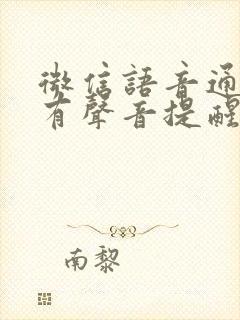 微信語音通
有聲音提醒
南黎